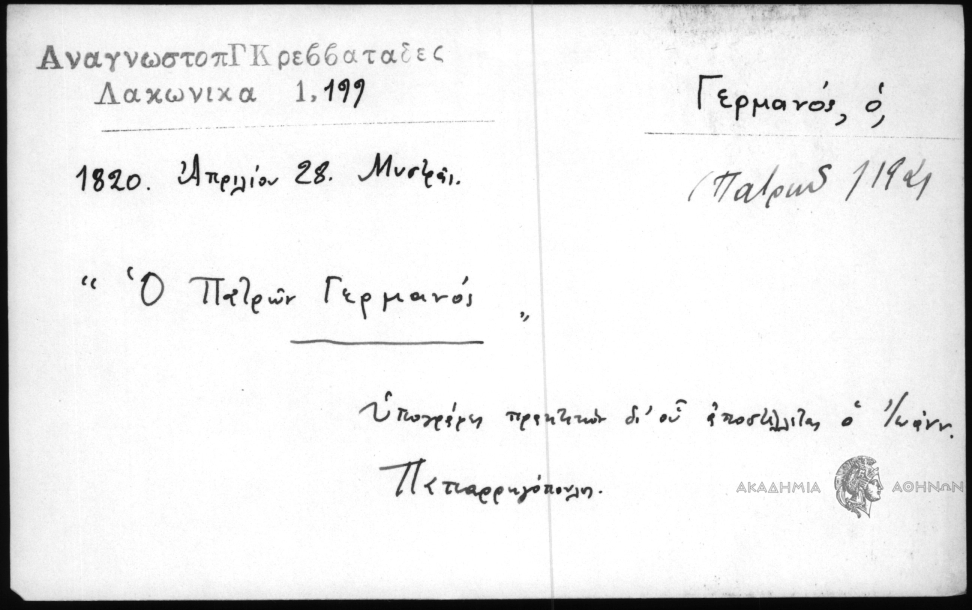 ΑναγνωστοπΓΚρεββαταδες
Λακωνικα 1, 199
Γερμανός, ὁ,
1820. Ἀπριλίου 28. Μυστρᾶι.
(Πατρων
" Ὁ Πατρῶν Γερμανός "
Ὑπογράφει πρακτικὸν δι' οὗ ἀποστέλλεται ὁ Ἰωάνν.
Παπαρρηγόπουλος.
ΑΚΑΔΗΜΙΑ ΑΘΗΝΩΝ